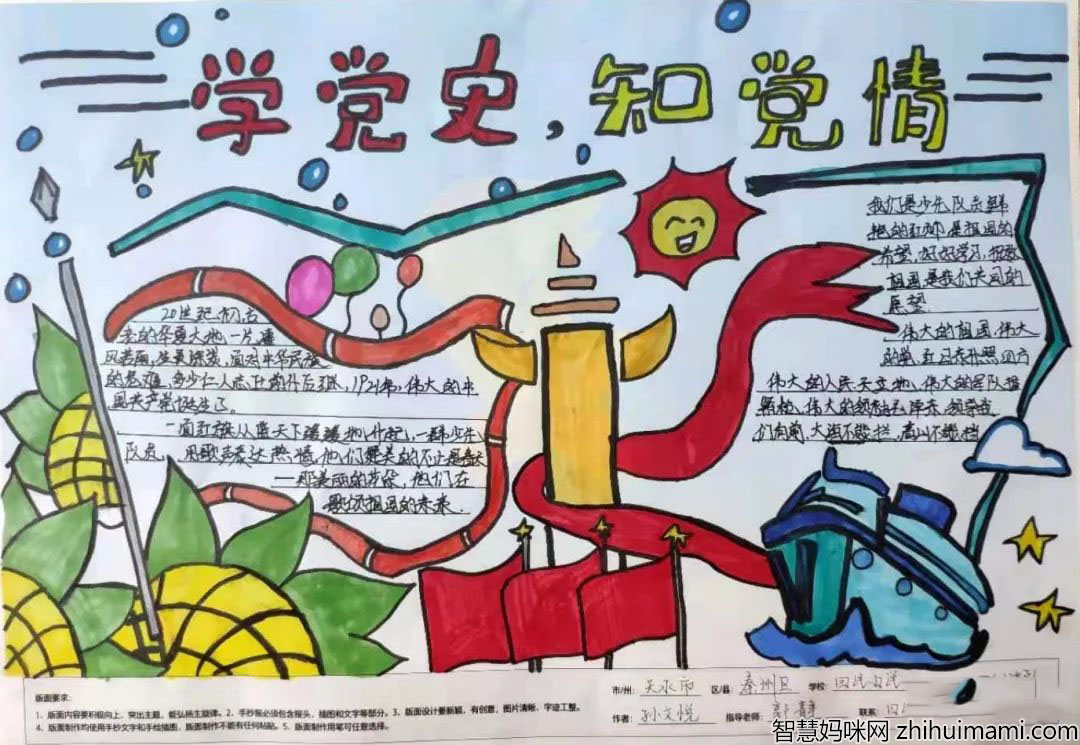 学党史,知党情
20世纪初古
老的华夏大地,一片凄
风苦雨,生灵涂炭,面对中华民族
的危难,多少仁人志士前仆后继,1921年,伟大的中
国共产党诞生了。
一面红旗从蓝天下缓缓地升起,一群少先
队员,用歌声表达热情,他们赞美的不止是春天
那美丽的花朵,他们在
歌颂祖国的未来.
我们是少先队员鲜
艳的红领巾是祖国的
希望,好好学习,报效
祖国是我们共同的
愿望
伟大的祖国伟大
的党,红日东升照四方
伟大的人民天立地,伟大的军队
伟大的领袖毛泽东,领导我
们向前,大海不能拦,高山不能挡
版面要求:
1、版面内容要积极向上,突出主题,能弘扬主旋律。2、手抄报必须包含报头、插图和文字等部分。3、版面设计要新颖,有创意,图片清晰,字迹工整。
4、版面制作均使用手抄文字和手绘插图,版面制作不能有任何粘贴。5、版面制作用笔可任意选择。
市/州: 天水市 区/县: 秦州区 学校:
作者: 孙文悦 指导老师: 郭静 联系:
智慧妈咪网 zhihuimami.com